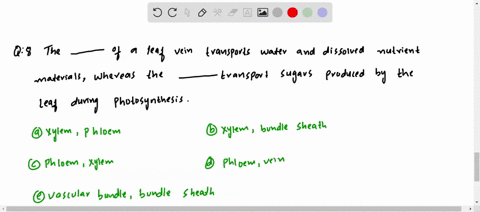 Q:8 The ______ of a leaf vein transports water and dissolved nutrient
materials, whereas the ______ transport sugars produced by the
leaf during photosynthesis.
ⓐ xylem, phloem
ⓑ xylem, bundle sheath
ⓒ phloem, xylem
ⓓ phloem, vein
ⓔ vascular bundle, bundle sheath